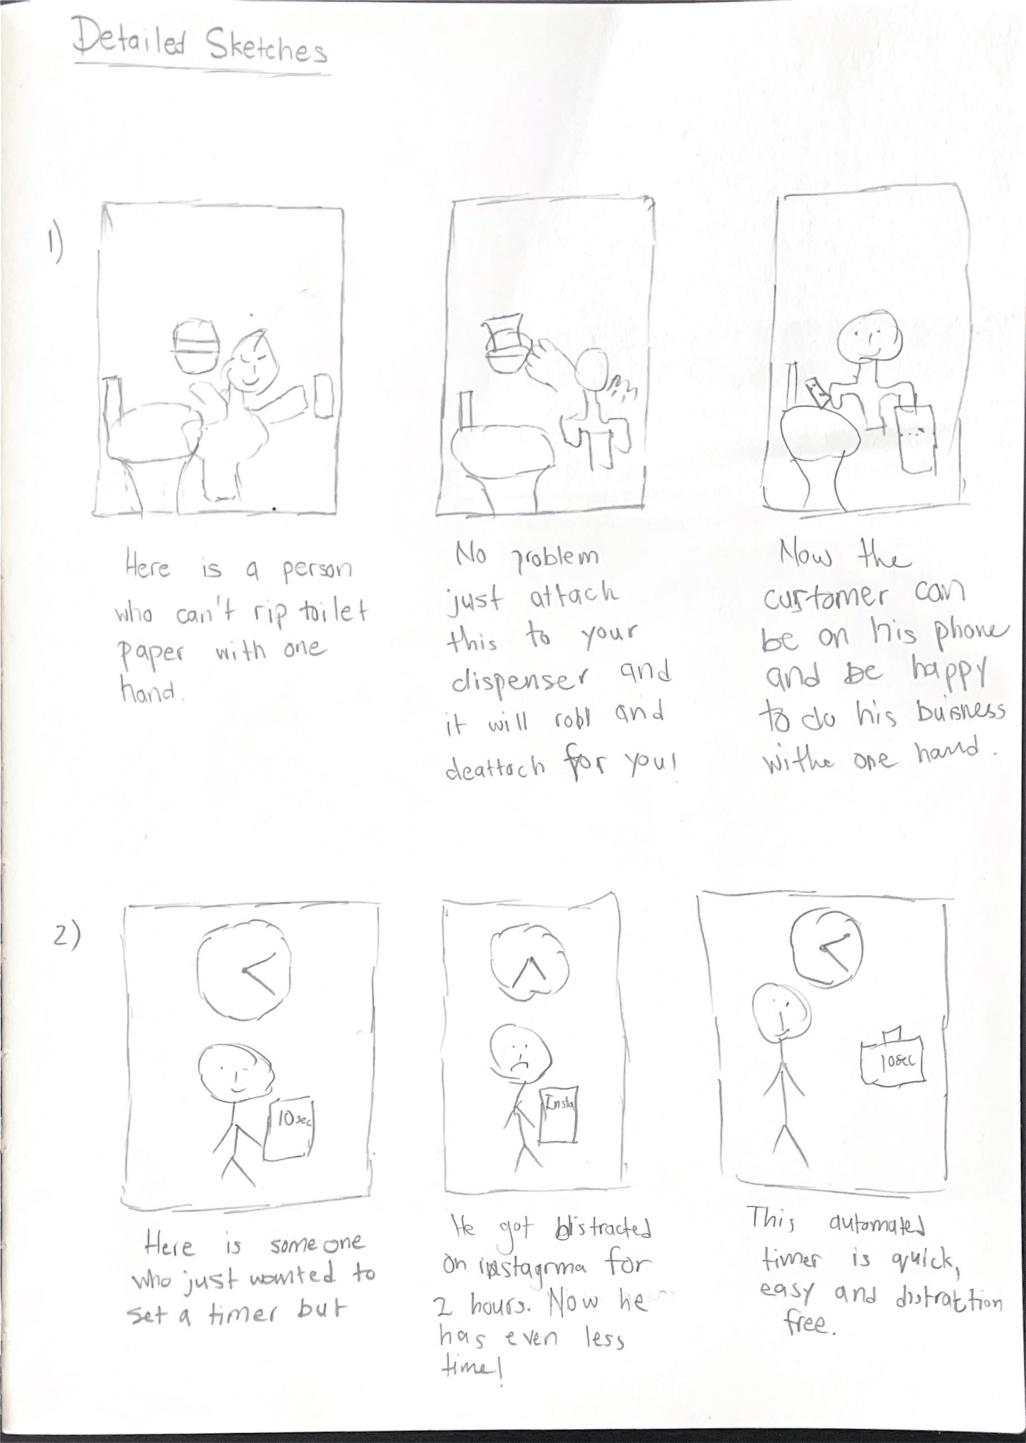 Detailed Sketches
1)
Here is a person
who can't rip toilet
paper with one
hand.
No problem
just attach
this to your
dispenser and
it will roll and
deattach for you!
Now the
customer can
be on his phone
and be happy
to do his buisness
withe one hand.
2)
10sec
Insta
10sec
Here is someone
who just wanted to
set a timer but
He got distracted
on instagrma for
2 hours. Now he
has even less
time!
This automated
timer is quick,
easy and distraction
free.